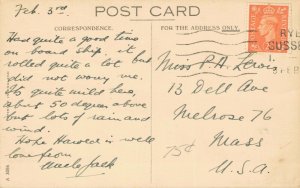 Feb. 3rd
POST CARD
CORRESPONDENCE.
FOR THE ADDRESS ONLY
Had quite a good time
on board ship, it
rolled quite a lot but
did not worry me.
Its quite mild here,
about 50 degrees above
but lots of rain and
wind.
Hope Harold is well
love from
Uncle Jack
RYE
SUSSE
Miss P. H. Lewis
13 Dell Ave
Melrose 76
Mass
U.S.A.
75¢